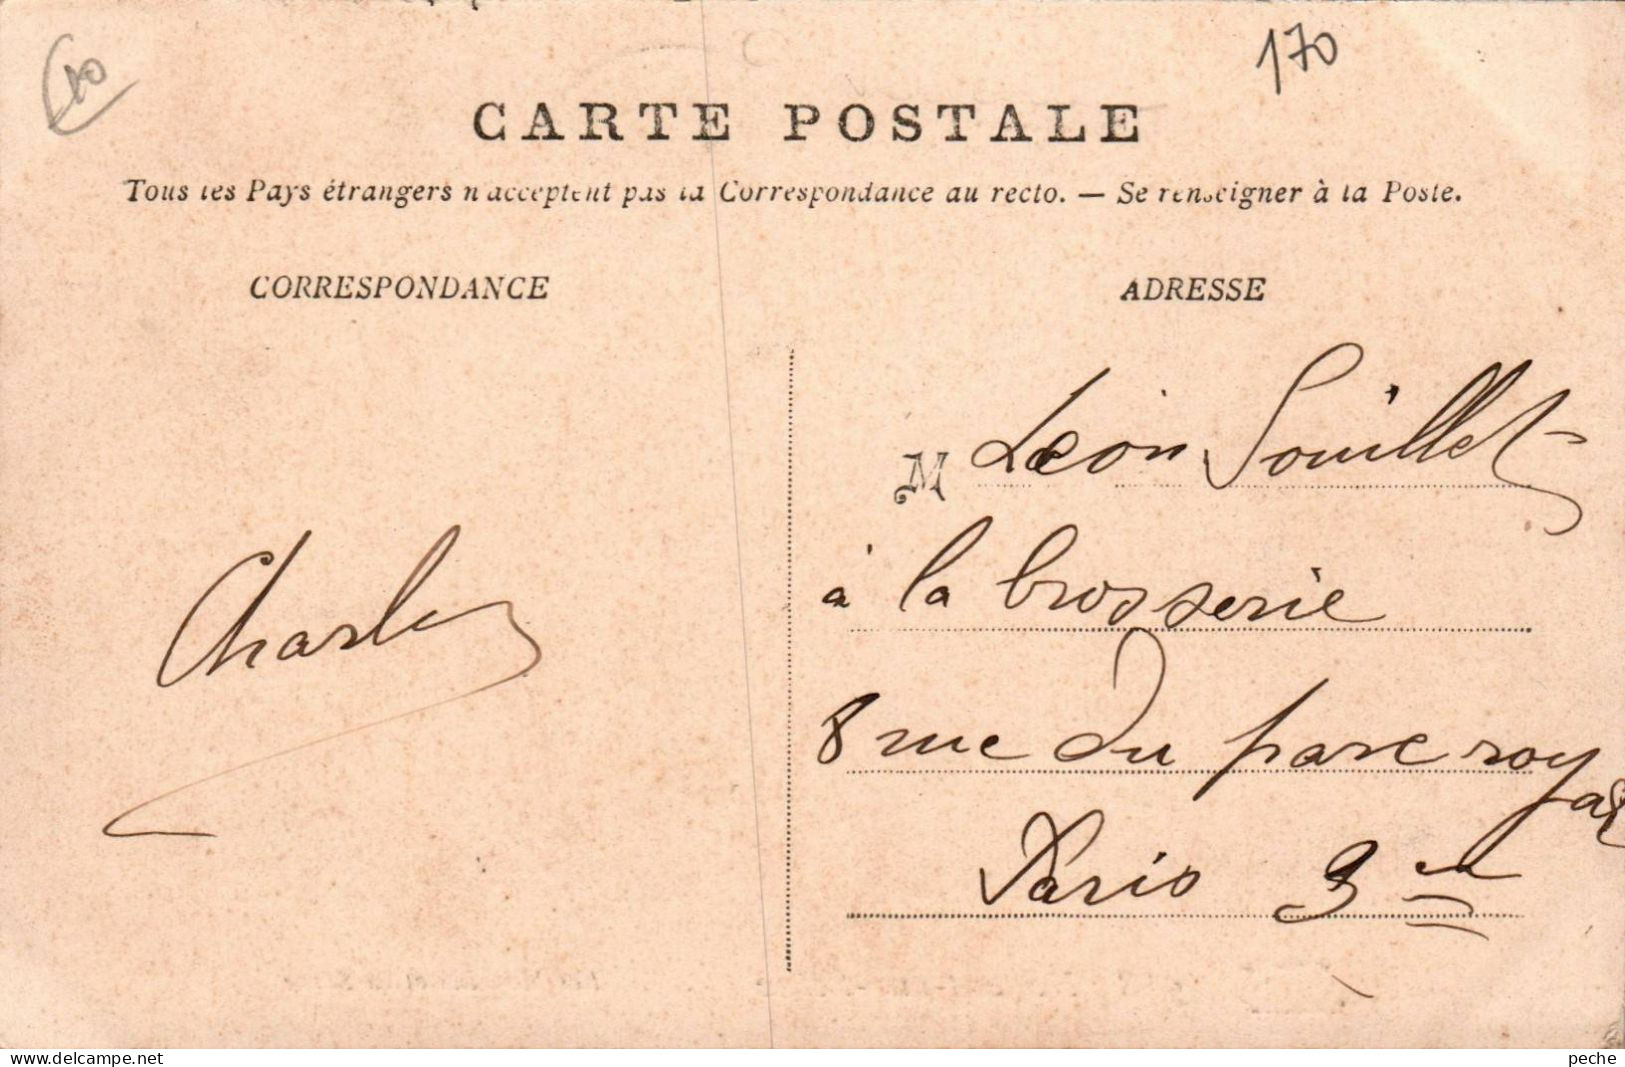 10
170
CARTE POSTALE
Tous les Pays étrangers n'acceptent pas la Correspondance au recto. — Se renseigner à la Poste.
CORRESPONDANCE
ADRESSE
M Léon Souillet
à la brosserie
8 rue du parc royal
Paris 3me
Charles
www.delcampe.net
peche